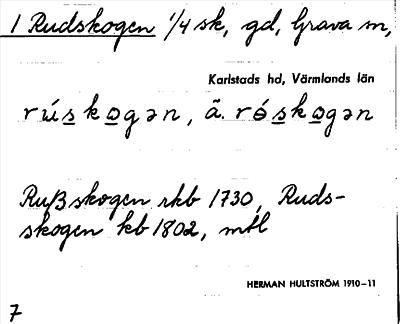 1 Rudskogen 1/4 sk, gd, Grava sn,
Karlstads hd, Värmlands län
rús̲ko̲gən, ä. rós̲ko̲gən
Rußskogen rkb 1730, Ruds-
skogen kb 1802, mtl
HERMAN HULTSTRÖM 1910–11
7